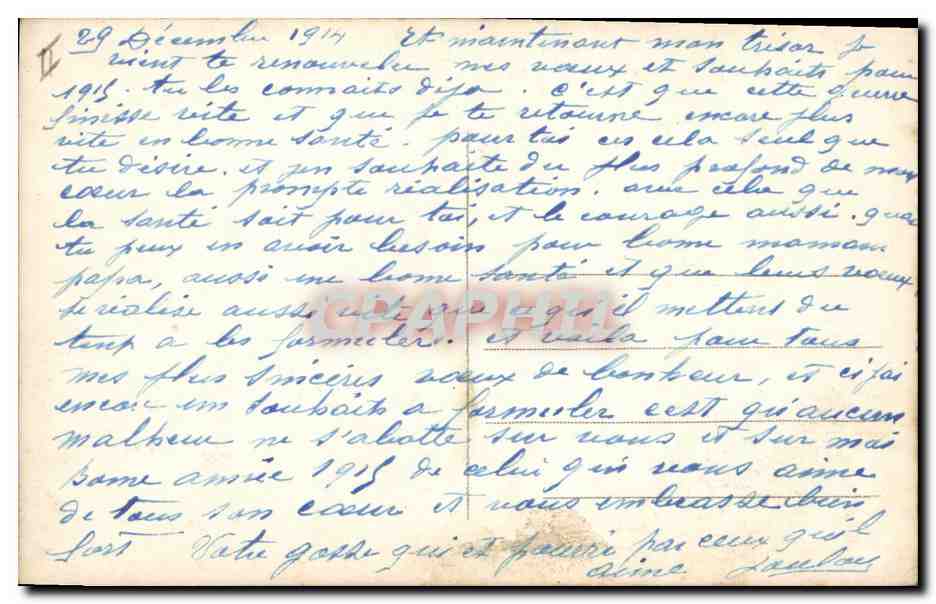 II
29 Décembre 1914 Et maintenant mon trésor je
vient te renouveler mes vœux et souhaits pour
1915. tu les connaits dija. c'est que cette guerre
finisse vite et que je te retourne encore plus
vite en bonne santé. pour toi ces cela seul que
tu désire. et jen souhaite du plus profond de mon
cœur la prompte réalisation. avec celui que
la santé soit pour toi, et le courage aussi. que
tu peux en avoir besoin pour bonne maman
papa, aussi une bonne santé et que leurs vœux
se réalise aussi vite que qu'il mettent du
temp a les formuler. et voila pour tous
mes plus sincères vœux de bonheur, et ci j'ai
encore un souhaits a formuler cest qu'aucun
malheur ne s'abatte sur vous et sur moi
bonne année 1915 de celui qui vous aime
de tous son cœur et vous embrasse bien
fort Votre gosse qui et pourri par ceux qu'il
aime Loulou
CPAPHIL